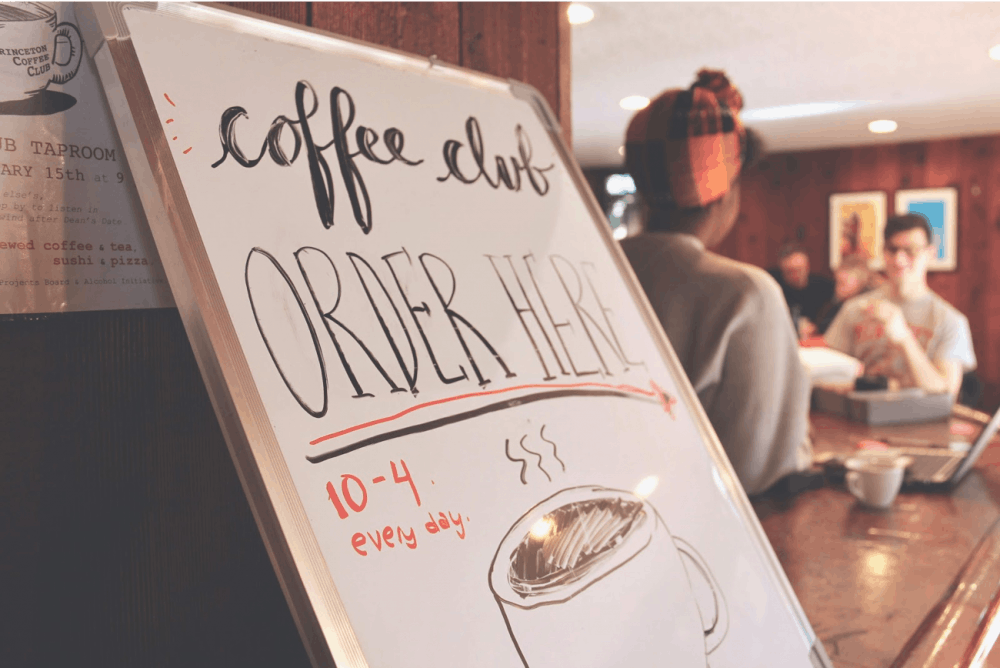 RINCETON
COFFEE
CLUB
UB TAPROOM
ARY 15th at 9
else's,
by to listen in
wind after Dean's Date
ewed coffee & tea,
sushi & pizza
Projects Board & Alcohol Initiative
coffee club
ORDER HERE
10-4
every day.